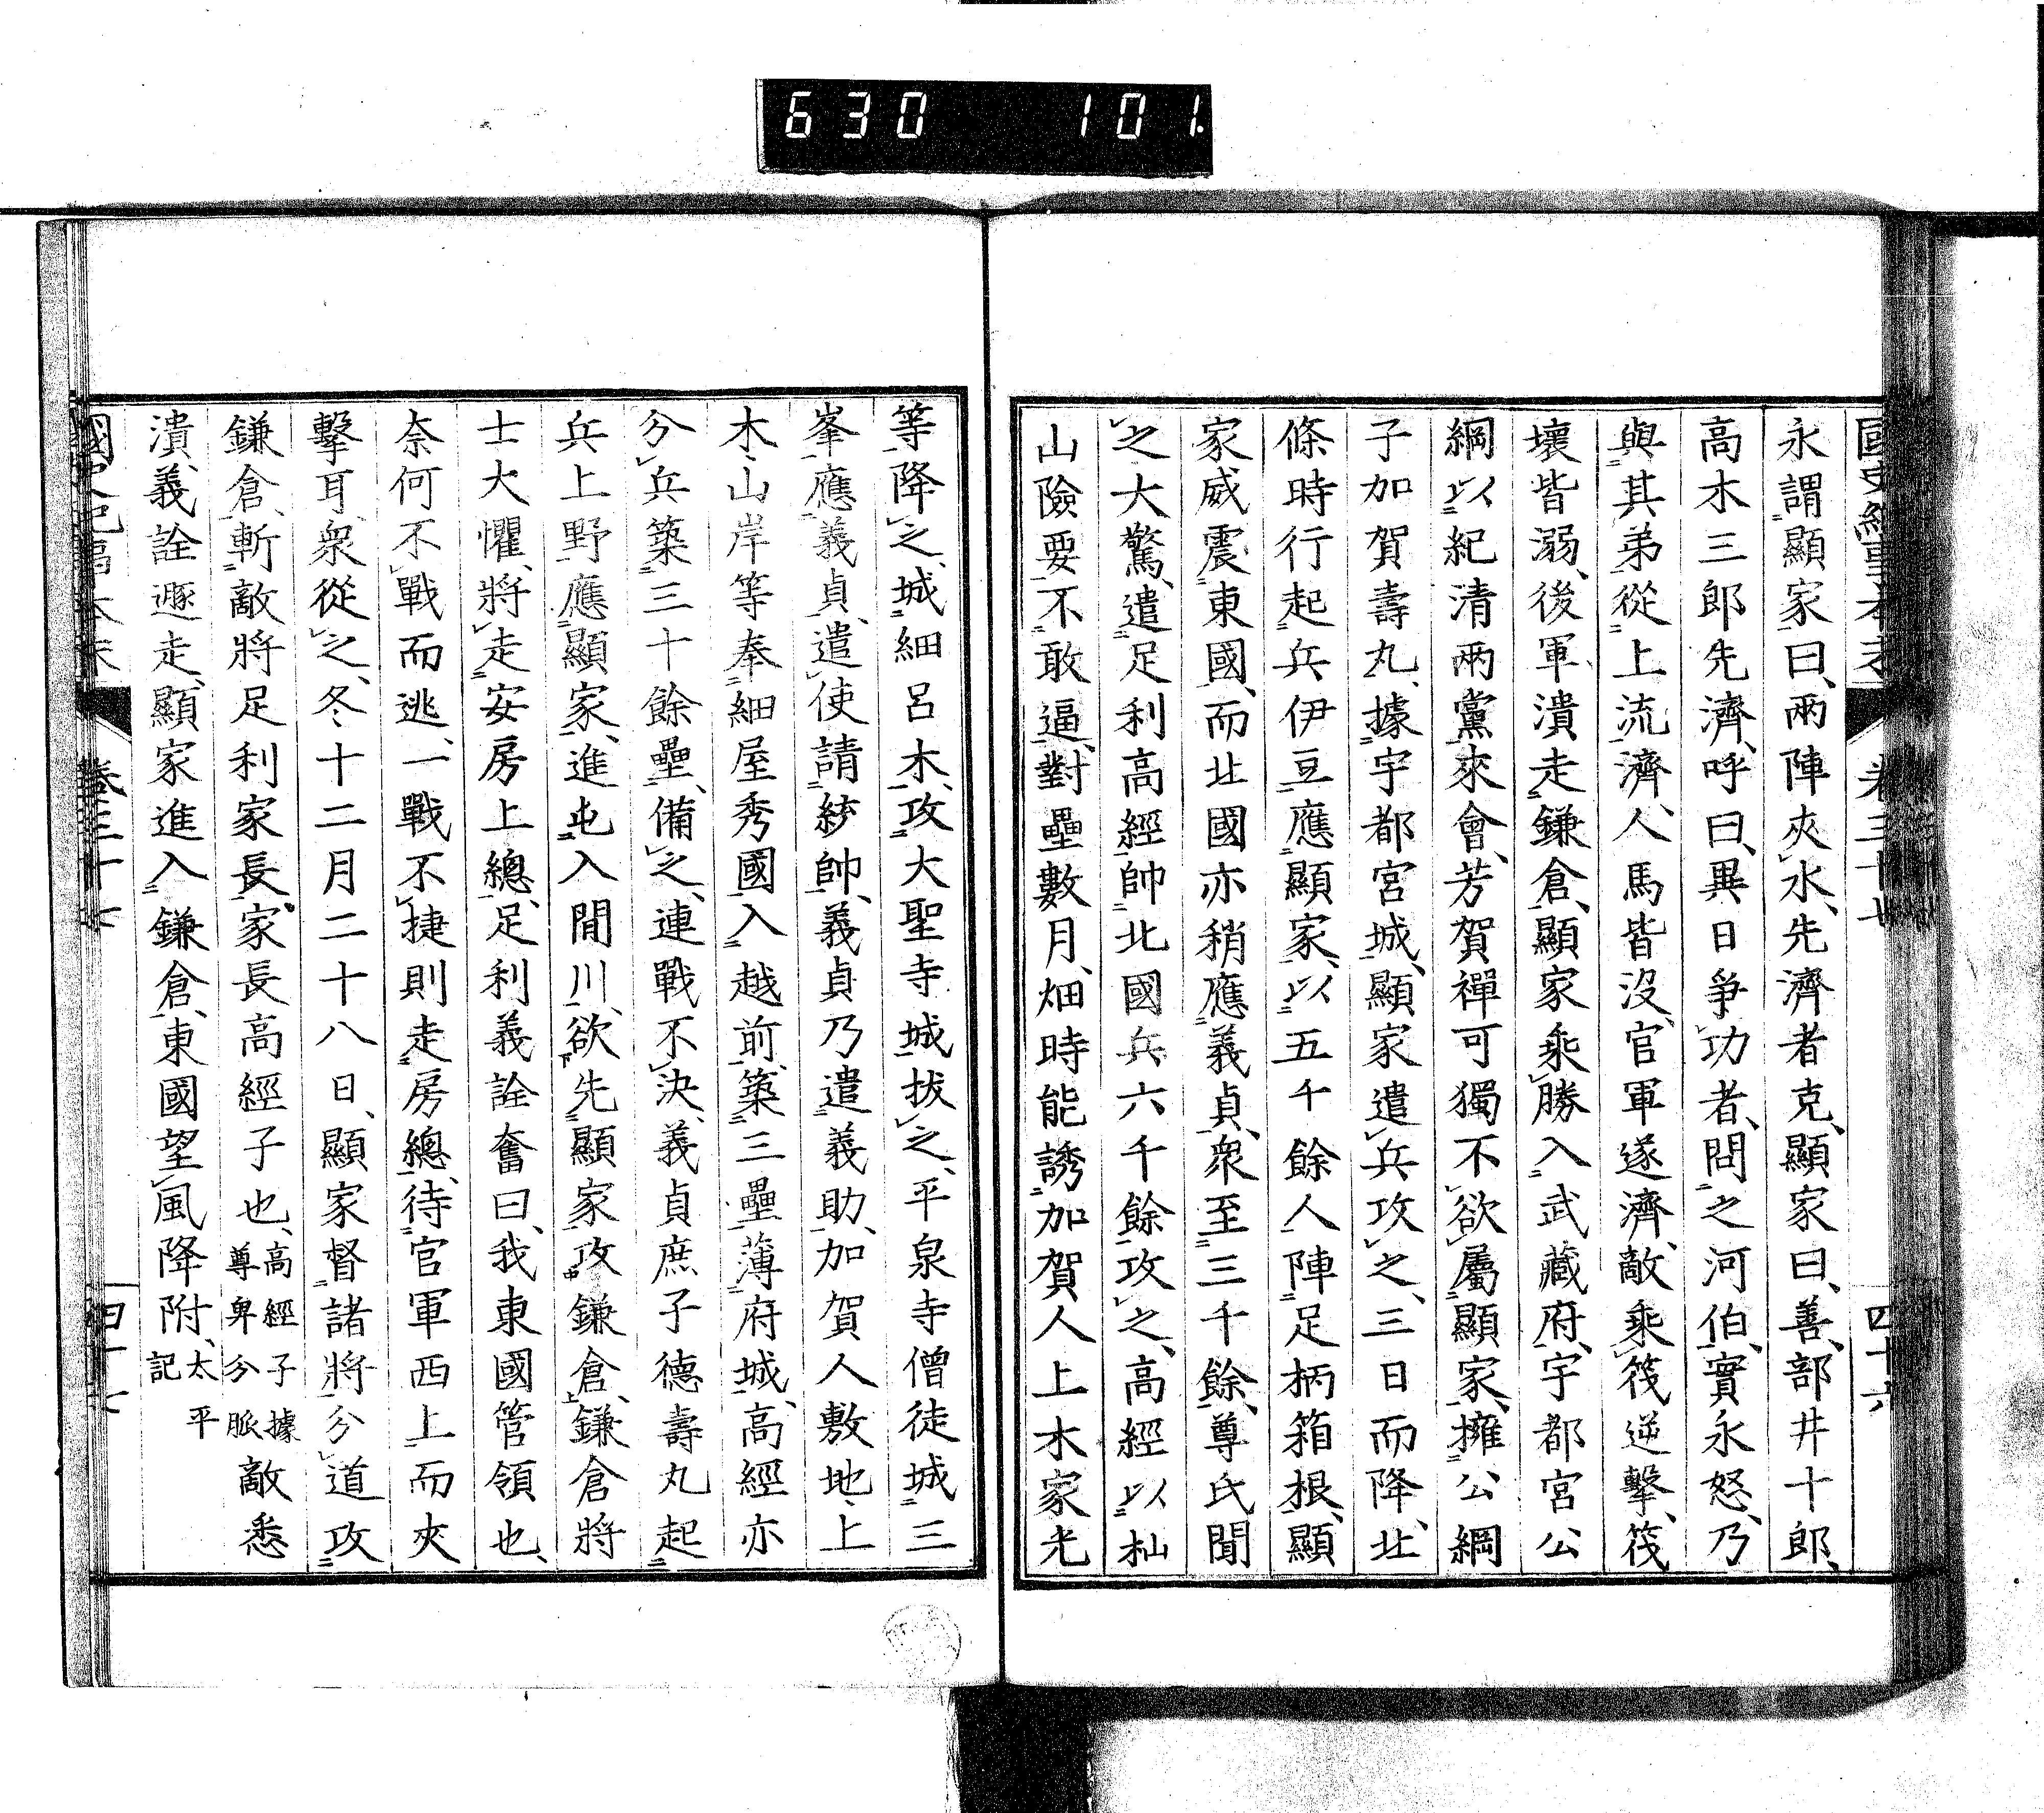 630 101
永謂顯家曰、兩陣夾水、先濟者克、顯家曰、善、部井十郎、
高木三郎先濟、呼曰、異日爭功者、問之河伯、實永怒、乃
與其弟從上流濟、人馬皆沒、官軍遂濟、敵乘筏逆擊、筏
壞皆溺、後軍潰走鎌倉、顯家乘勝入武藏府、宇都宮公
綱以紀清兩黨來會、芳賀禪可獨不欲屬顯家、擁公綱
子加賀壽丸、據宇都宮城、顯家遣兵攻之、三日而降、北
條時行起兵伊豆應顯家、以五千餘人陣足柄箱根、顯
家威震東國、而北國亦稍應義貞、衆至三千餘、尊氏聞
之大驚、遣足利高經帥北國兵六千餘攻之、高經以杣
山險要不敢逼、對壘數月、畑時能誘加賀人上木家光
等降之、城細呂木、攻大聖寺城拔之、平泉寺僧徒城三
峯、應義貞、遣使請統帥、義貞乃遣義助、加賀人敷地、上
木、山岸等奉細屋秀國入越前、築三壘薄府城、高經亦
分兵築三十餘壘、備之、連戰不決、義貞庶子德壽丸起
兵上野應顯家、進屯入間川、欲先顯家攻鎌倉、鎌倉將
士大懼、將走安房上總、足利義詮奮曰、我東國管領也、
奈何不戰而逃、一戰不捷則走房總、待官軍西上而夾
擊耳、衆從之、冬、十二月二十八日、顯家督諸將分道攻
鎌倉、斬敵將足利家長、家長高經子也、高經子據尊卑分脈敵悉
潰、義詮遯走、顯家進入鎌倉、東國望風降附、太平記
卷三十七
四十六